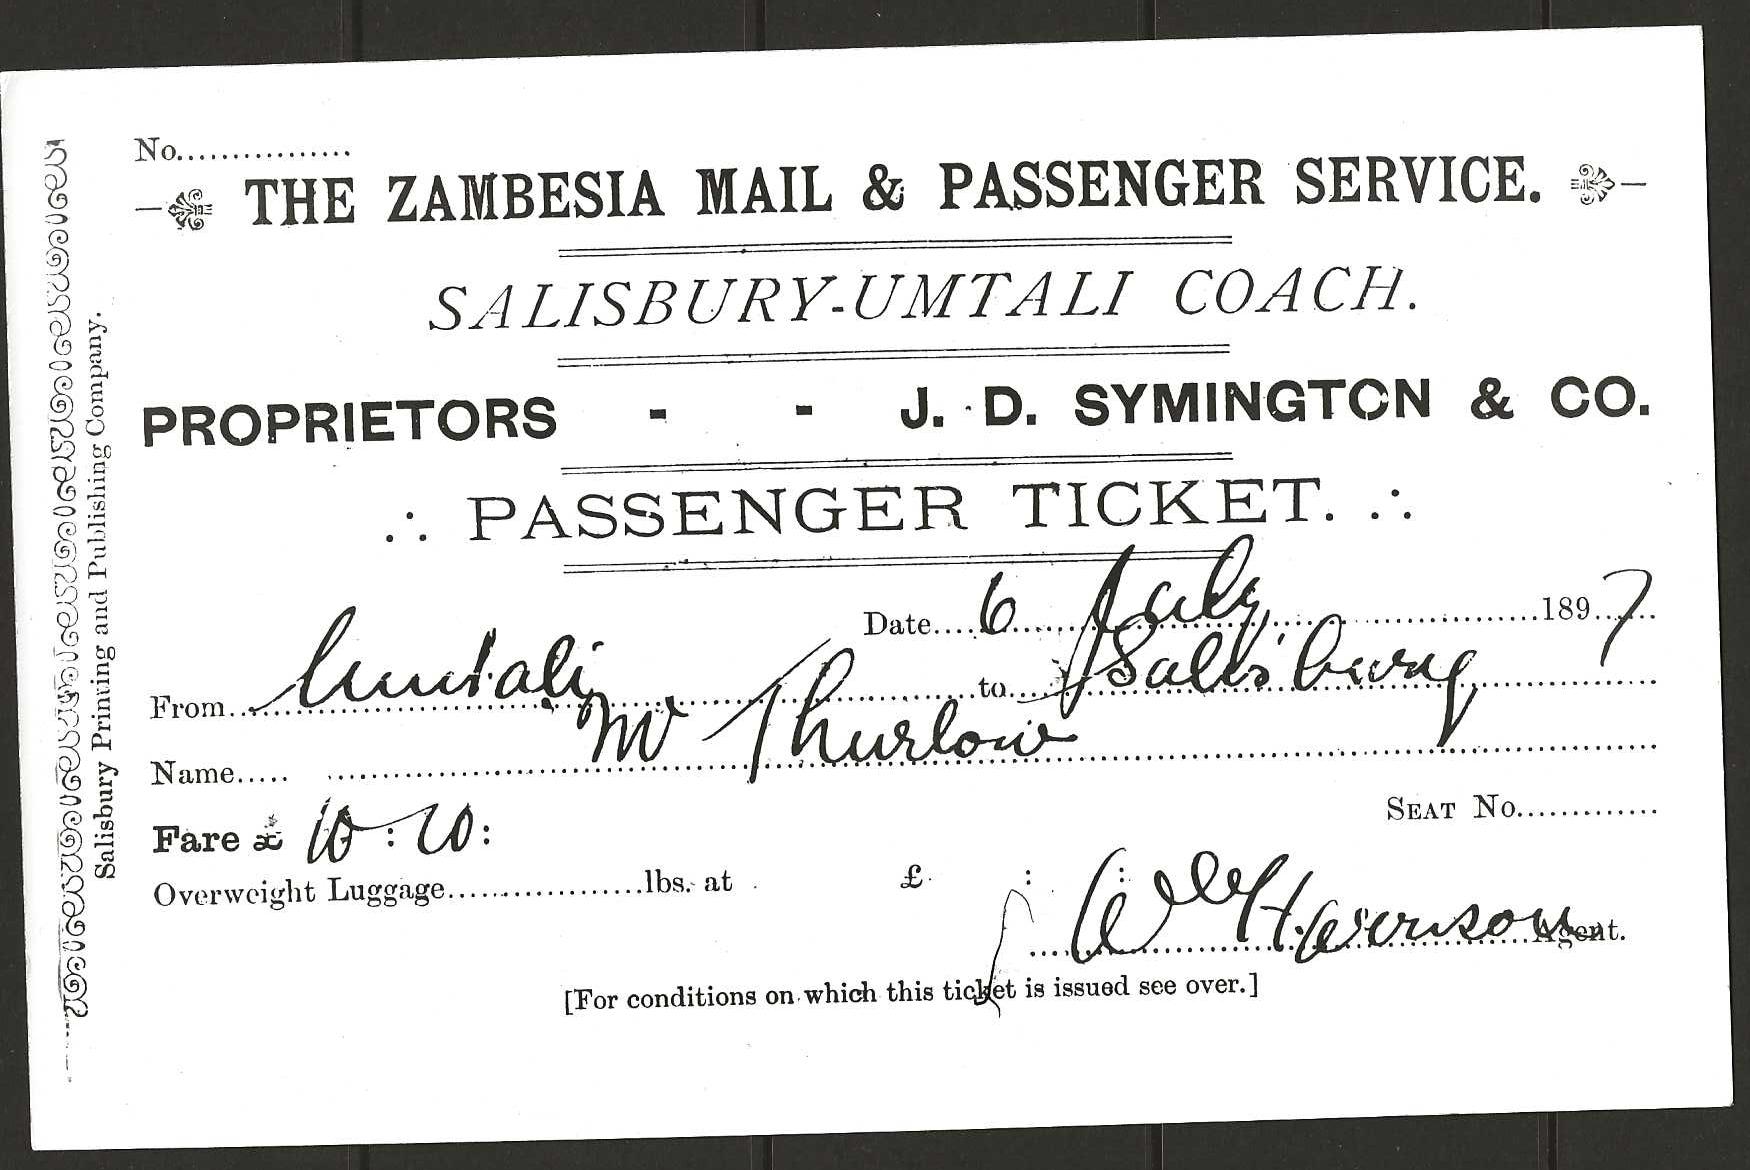 No................
THE ZAMBESIA MAIL & PASSENGER SERVICE.
SALISBURY-UMTALI COACH.
PROPRIETORS - - J. D. SYMINGTON & CO.
∴ PASSENGER TICKET. ∴
Date 6 July 1897
From Umtali to Salisbury
Name Mr Thurlow
SEAT No.............
Fare £ 10 : 10 :
Overweight Luggage.................lbs. at £ : :
Agent.
[For conditions on which this ticket is issued see over.]
Salisbury Printing and Publishing Company.